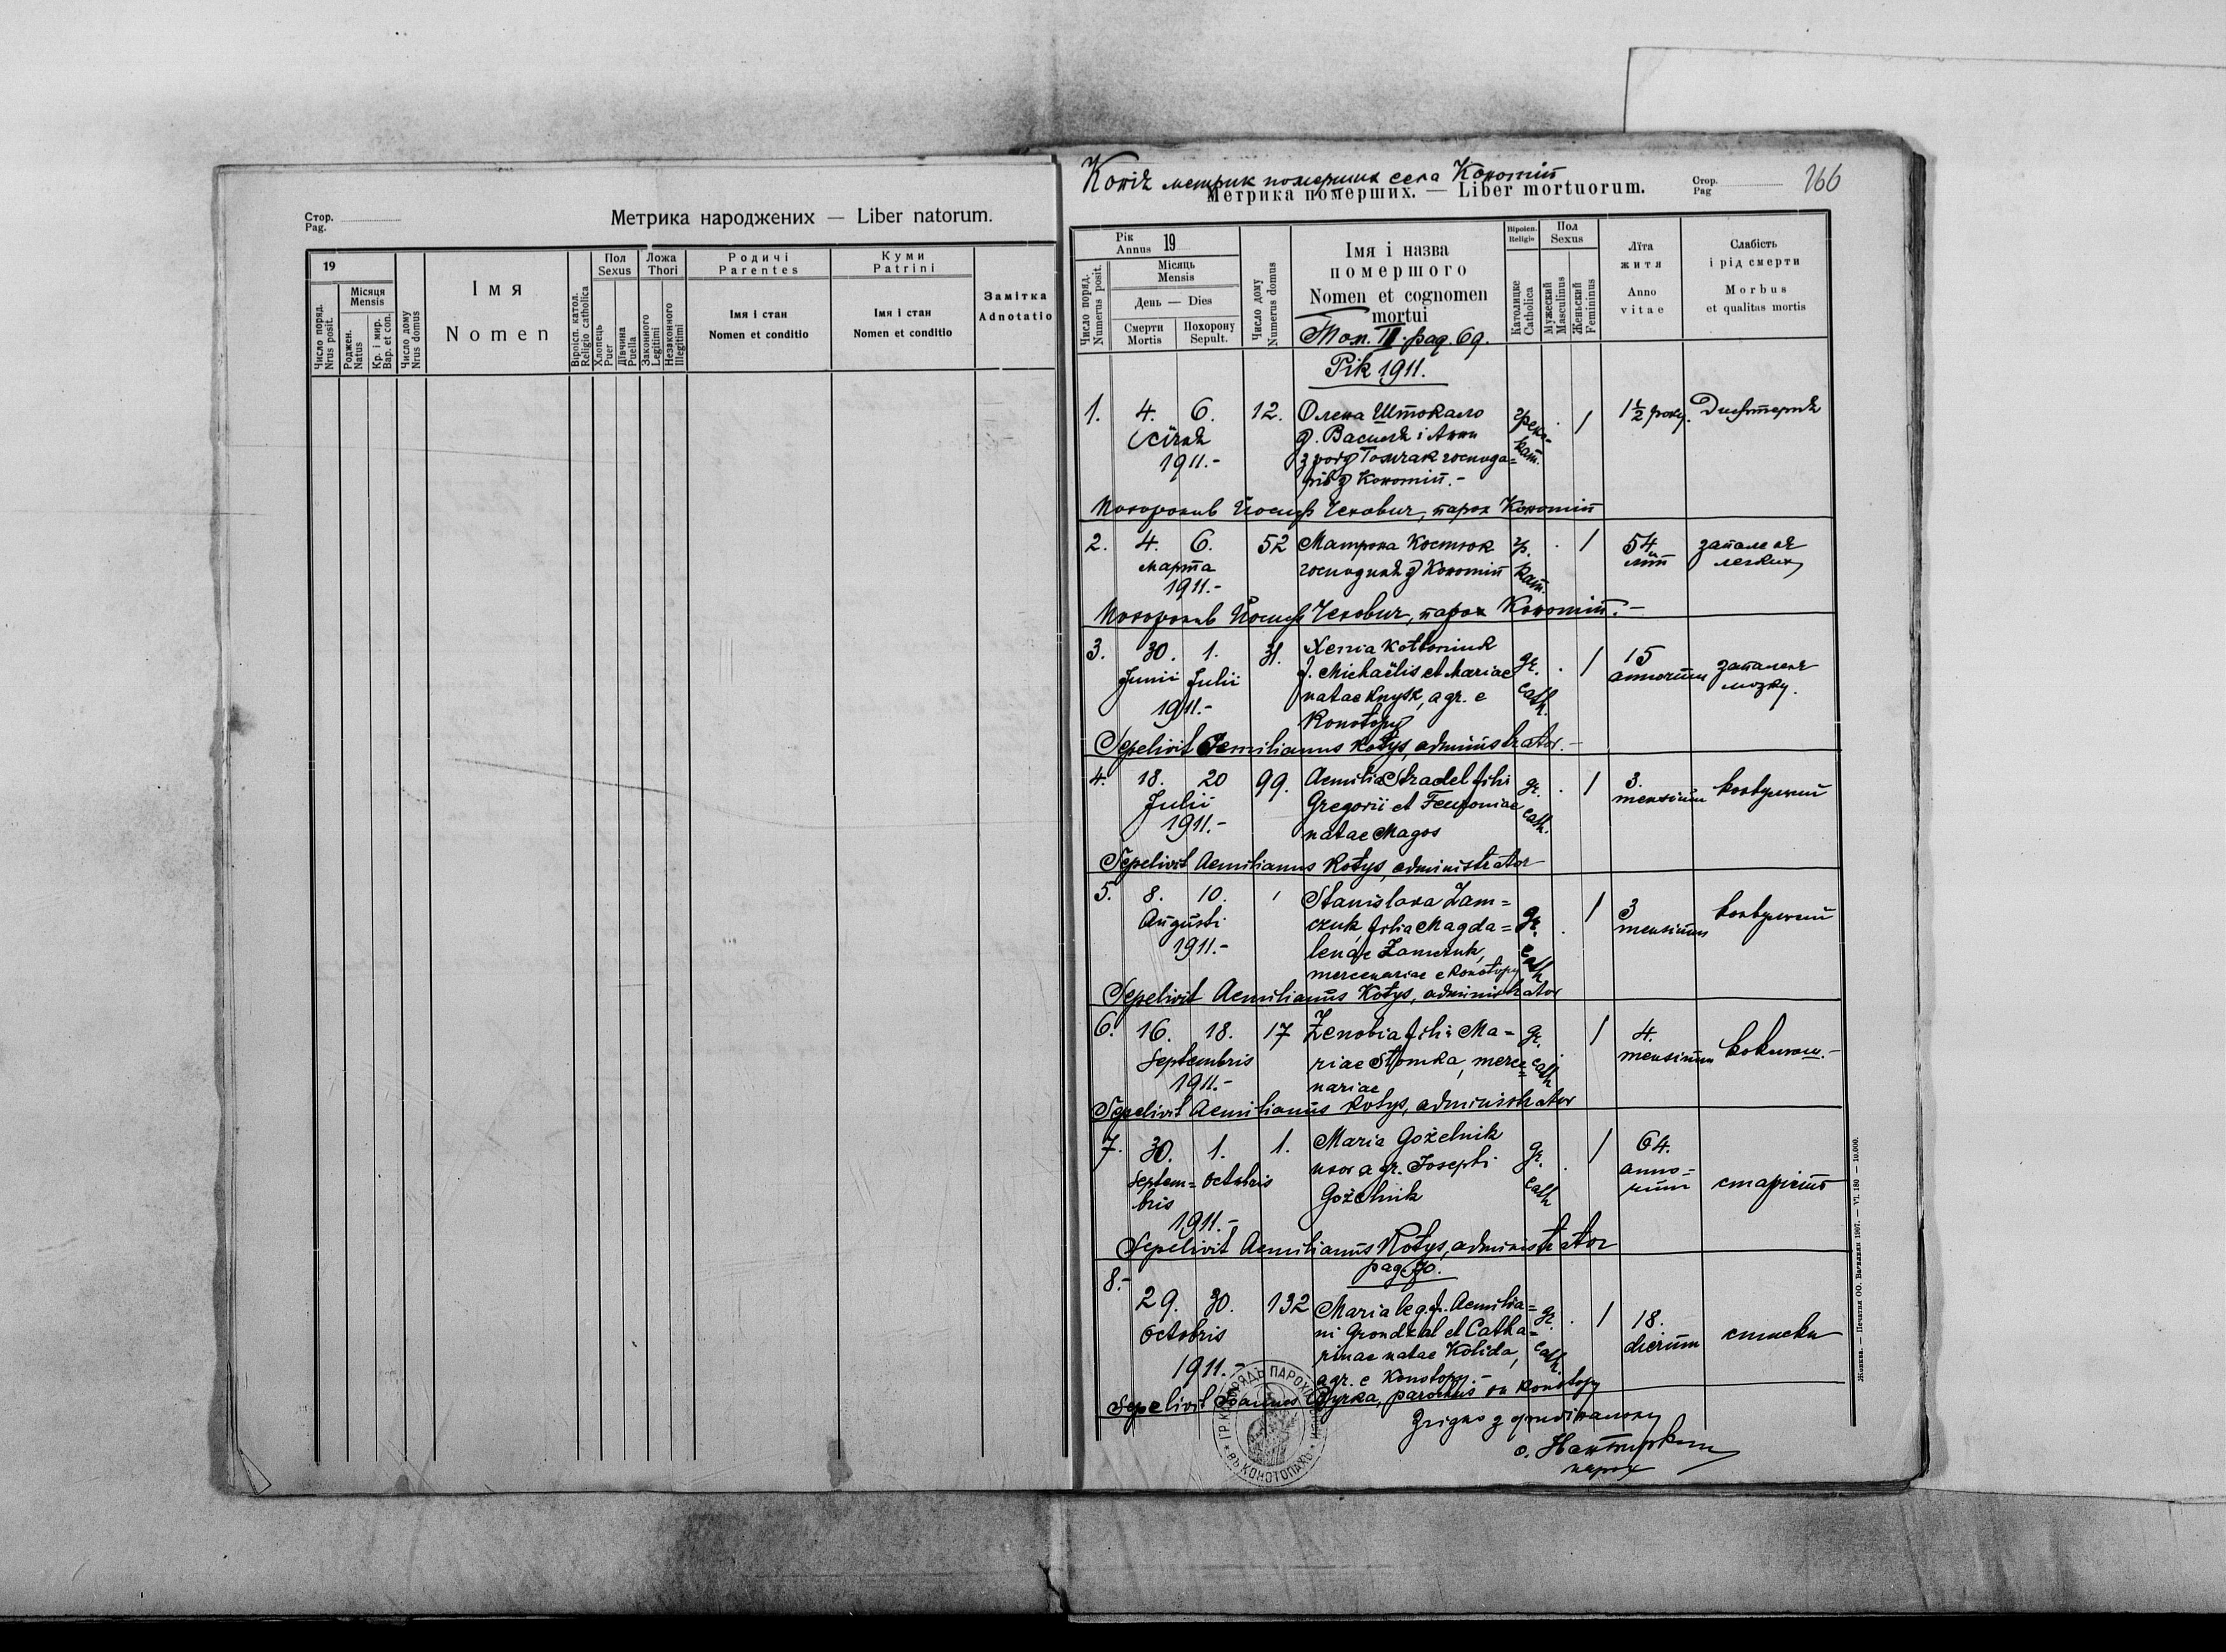 Стор.
Pag.
Метрика народжених — Liber natorum.
19
Місяця
Mensis
Число поряд.
Nrus posit.
Роджен.
Natus
Кр. і мир.
Bap. et con.
Число дому
Nrus domus
Імя
Nomen
Віроісп. катол.
Religio catholica
Пол
Sexus
Хлопець
Puer
Дівчина
Puella
Ложа
Thori
Законного
Legitimi
Незаконного
Illegitimi
Родичі
Parentes
Імя і стан
Nomen et conditio
Куми
Patrini
Імя і стан
Nomen et conditio
Замітка
Adnotatio
Копія метрик померших села Конотіп
Метрика померших. — Liber mortuorum.
Стор.
Pag
166
Рік
Annus 19
Місяць
Mensis
День — Dies
Число поряд.
Numerus posit.
Смерти
Mortis
Похорону
Sepult.
Число дому
Numerus domus
Імя і назва
помершого
Nomen et cognomen
mortui
Віроісп.
Religio
Католицке
Catholica
Пол
Sexus
Мужеский
Masculinus
Женьский
Femininus
Літа
житя
Anno
vitae
Слабість
і рід смерти
Morbus
et qualitas mortis
Том. III. pag. 69.
Рік 1911.
1. 4. 6. 12. Олена Штокало греко- . / 1½ року. Дифтерия
січня д. Василя і Анни кат.
1911.- з род Томчак господа=
рів з Конотіп.-
Похоронив Йосиф Чехович, парох Конотіп
2. 4. 6. 52 Матрона Костюк гр. . / 54 запаленя
марта господиня з Конотіп кат. літ легких
1911.-
Похоронив Йосиф Чехович, парох Конотіп.-
3. 30. 1. 31. Xenia Kottoniuk gr. . / 15 запаленя
Junii Julii f. Michaëlis et Mariae cath. annorum мозку.
1911.- natae Knysk, agr. e
Konotopy
Sepelivit Aemilianus Kotys, administrator.-
4. 18. 20 99. Aemilia Stradel filia gr. . / 3. конвульсий
Julii Gregorii et cath. mensium
1911.- natae Magos
Sepelivit Aemilianus Kotys, administrator
5. 8. 10. ' Stanislava Zam= gr. . / 3 конвульсий
Augusti czuk, filia Magda= cath. mensium
1911.- lenae Zamczuk,
mercenariae e Konotopy
Sepelivit Aemilianus Kotys, administrator
6. 16. 18. 17 Zenobia filia Ma= gr. . / 4.
Septembris riae Slomka, merce= cath mensium
1911.- nariae
Sepelivit Aemilianus Kotys, administrator
7. 30. 1. 1. Maria Goželnik gr. . / 64.
Septem= Octobris uxor agr. Josephi cath anno=
bris Goželnik rum старість
1911.-
Sepelivit Aemilianus Kotys, administrator
pag. 70.
8.- 29. 30. 132 Maria leg. f. Aemilia= gr. . / 18.
Octobris ni Grondzal et Catha= cath. dierum
1911.- rinae natae Kolida,
agr. e Konotopy.-
Sepelivit Ioannes parochus in Konotopy
Згідно з
парох
ВЪ КОНОТОПАХЪ
Жовква. — Печатня ОО. Василиян 1907. — VI. 180 — 10.000.